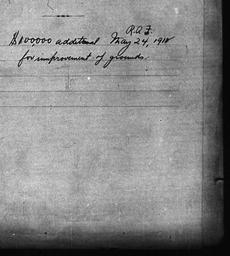 R.A.F.
$100000 additional May 24, 1918
for improvement of grounds.